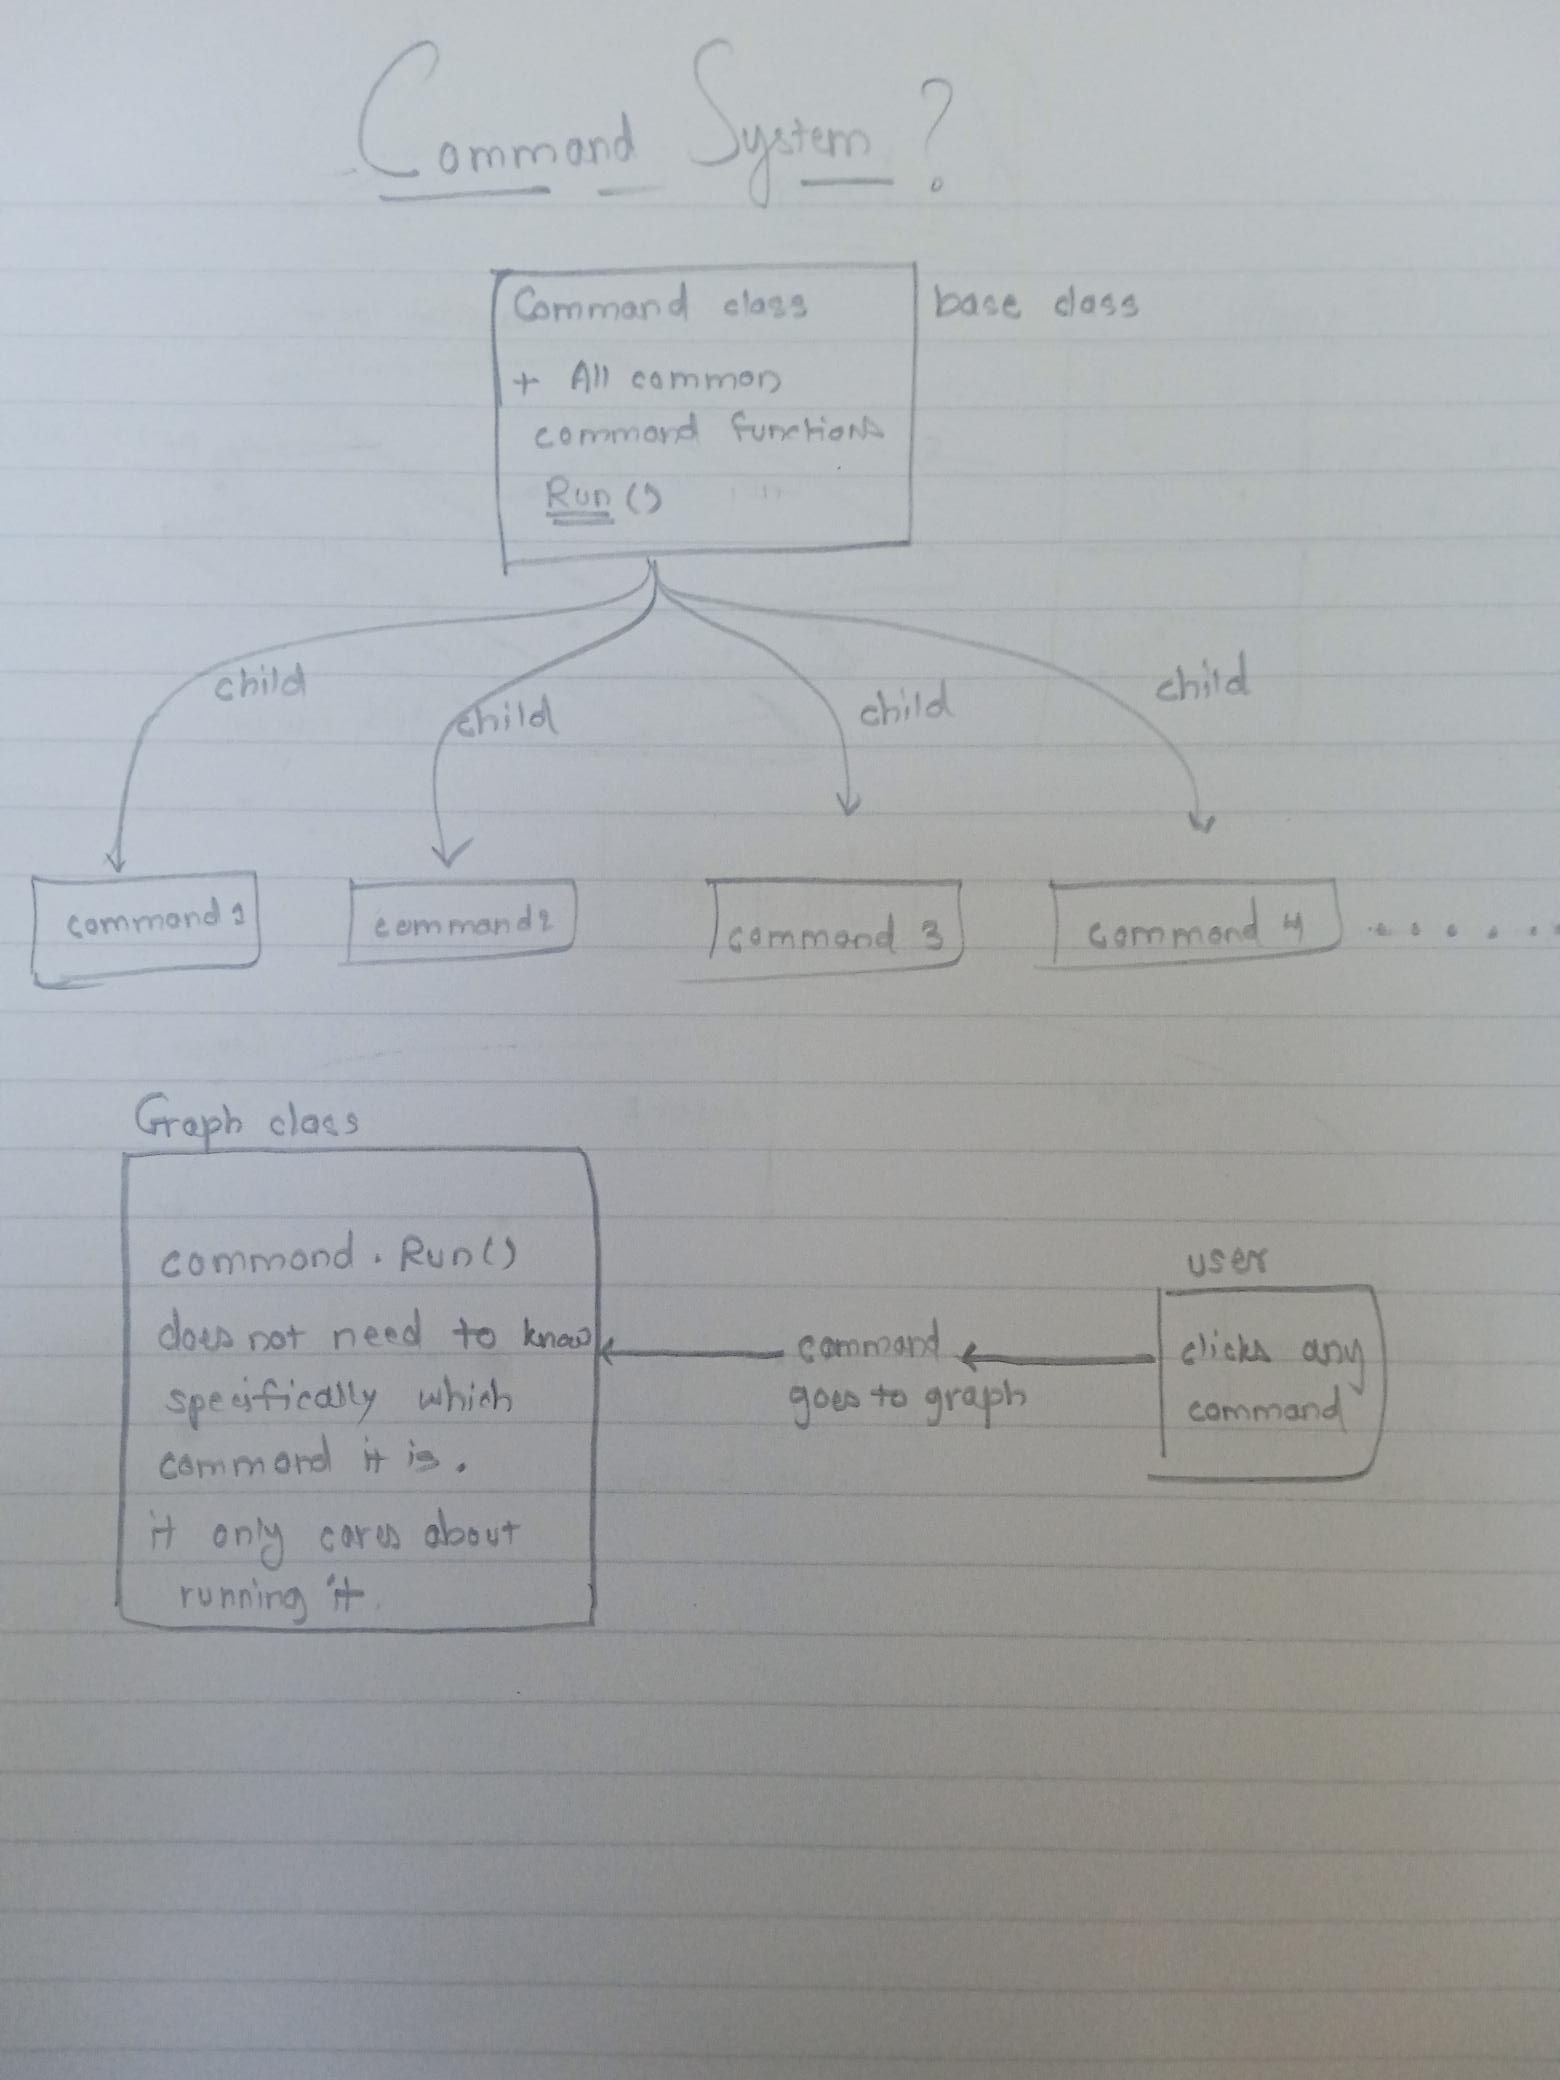 Command System?
Command class
base class
+ All common
command functions
Run ()
child
child
child
child
command 1
command 2
command 3
command 4 ......
Graph class
command . Run()
does not need to know
specifically which
command it is.
it only cares about
running it.
command
goes to graph
user
clicks any
command